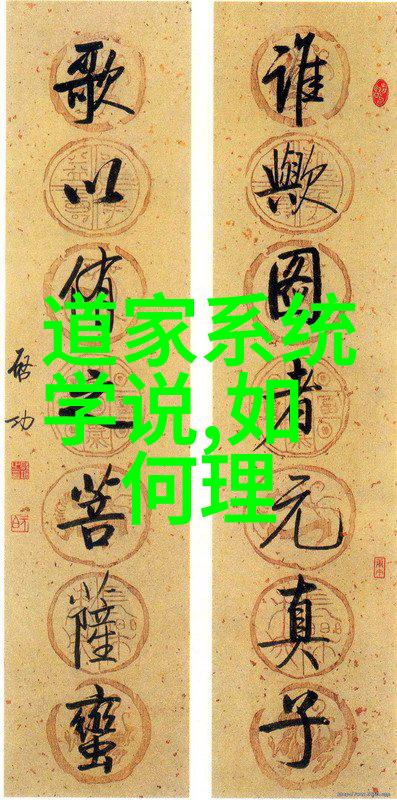 谁欤图者元真子
歌以侑之菩萨蛮
启功
道家系统
学说,如
何理